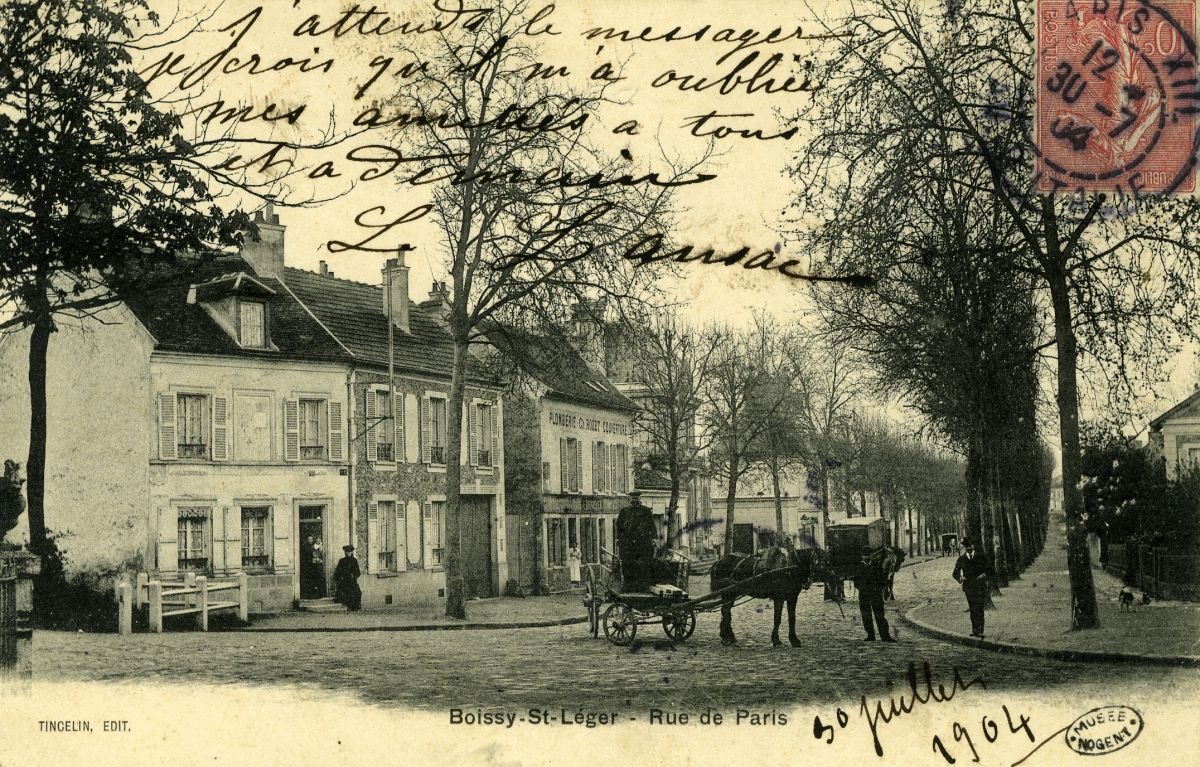 J'attends le messager
je crois qu'il m'a oubliée
mes amitiés à tous
et à demain
L. Lansac
PARIS XIII
12
30 -7
04
PL. D'ITALIE
POSTES
10
PUBLIQUE
PLOMBERIE CH. HUET COUVERTURE
Boissy-St-Léger - Rue de Paris
TINCELIN, EDIT.
30 juillet
1904
MUSÉE
NOGENT